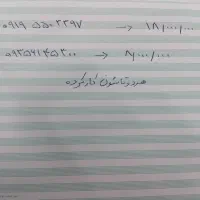 ۰۹۱۹ ۵۵۰ ۲۲۹۷ → ۱۸/۰۰۰/۰۰۰
۰۹۳۵۶۱۴۵۳۰۰ → ۸/۰۰۰/۰۰۰
هردوتاشون کارکرده